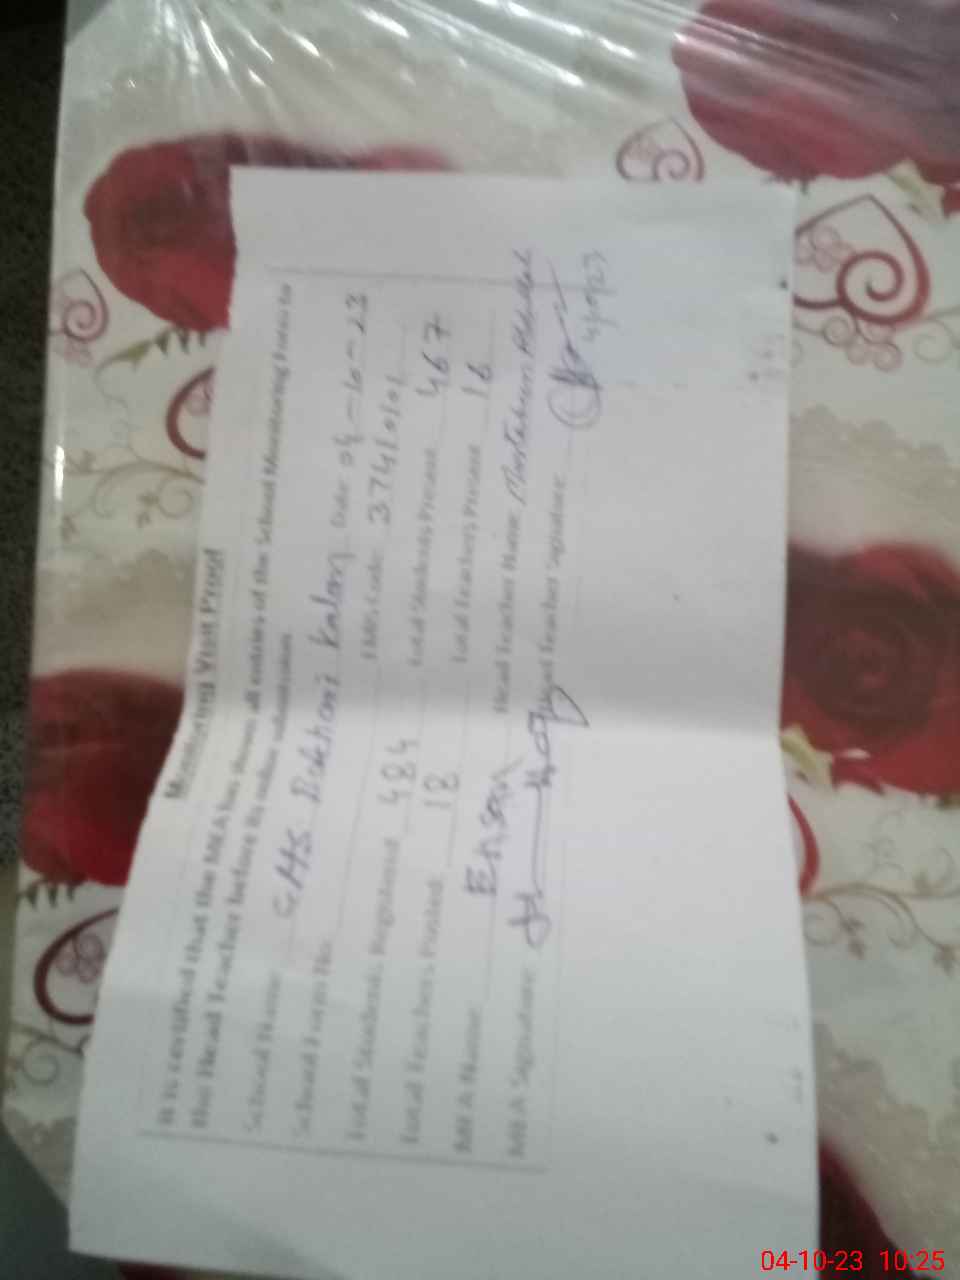 Monitoring Visit Proof
It is certified that the MEA has shown all entries of the School Monitoring Form to
the Head Teacher before its online submission
School Name: GHS Dokhori Kalan Date: 04-10-23
School Form No: EMIS Code: 37410101
Total Students Registered 484 Total Students Present 467
Total Teachers Posted: 18 Total Teachers Present 16
MEA Name: Head Teacher Name:
MEA Signature: Head Teacher Signature:
4/10/23
04-10-23 10:25